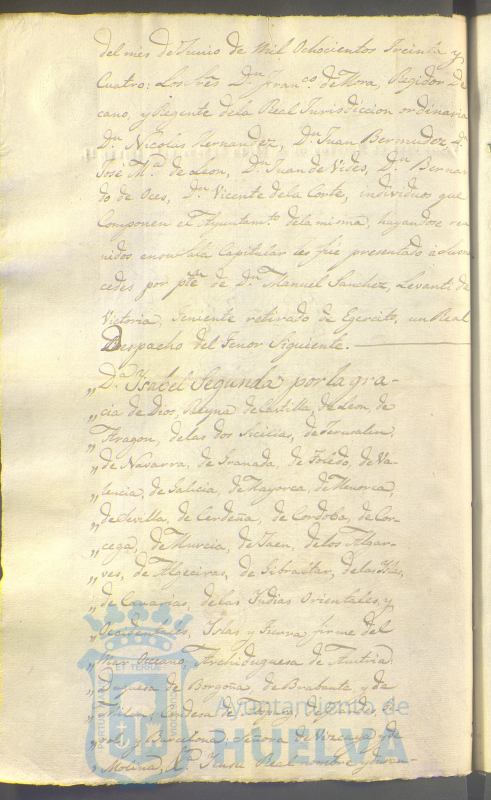 del mes de Junio de Mil Ochocientos Treinta y
Cuatro: Los Sres Dn. Franco. de Mora, Regidor De
cano, y Regente de la Real Jurisdiccion ordinaria
Dn. Nicolas Hernandez, Dn. Juan Bermudez, Dn.
Jose Ma. de Leon, Dn. Juan de Vides, Dn. Bernar
do de Oces, Dn. Vicente de la Corte, individuos que
componen el Ayuntamto. de la misma, hayandose reu
nidos en su Sala Capitular les fue presentado á sus mer
cedes por pte. de Dn. Manuel Sanchez, Levanti de
Victoria, Teniente retirado de Egercito, un Real
Despacho del Tenor Siguiente.
„Da. Ysabel Segunda por la gra-
„cia de Dios, Reyna de Castilla, de Leon, de
„Aragon, de las dos Sicilias, de Jerusalen,
„de Navarra, de Granada, de Toledo, de Va-
„lencia, de Galicia, de Mayorca, de Menorca,
„de Sevilla, de Cerdeña, de Cordoba, de Cor-
„cega, de Murcia, de Jaen, de los Algar-
„ves, de Algeciras, de Gibraltar, de las Yslas
„de Canarias, de las Yndias Orientales, y
„Occidentales, Yslas y Tierra firme del
„Mar Occeano, Archiduquesa de Austria
„Duquesa de Borgoña, de Brabante, y de
„Milan, Condesa de
„y Barcelona, Señora de Vizcaya y de
„Molina, &a. Real nombre
PORTUS MARIS ET TERRAE CUSTODIA
Ayuntamiento de
HUELVA